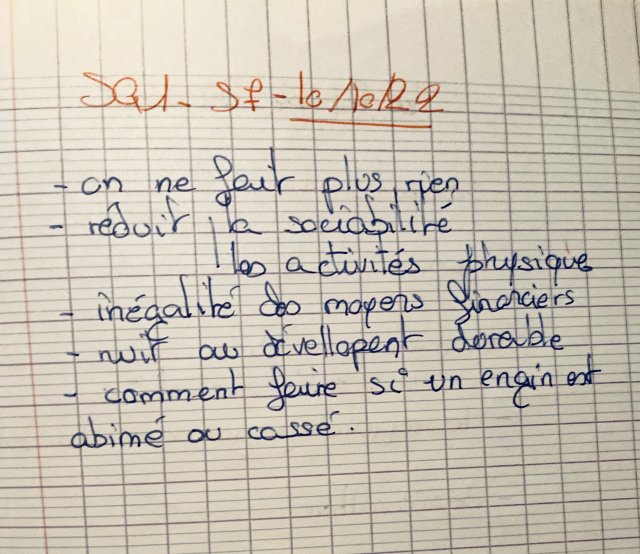 SQ1. SF - 10/10/22
- on ne fait plus rien
- réduit la sociabilité
les activités physique
- inégalité des moyens financiers
- nuit au dévellopent durable
- comment faire si un engin est
abimé ou cassé.